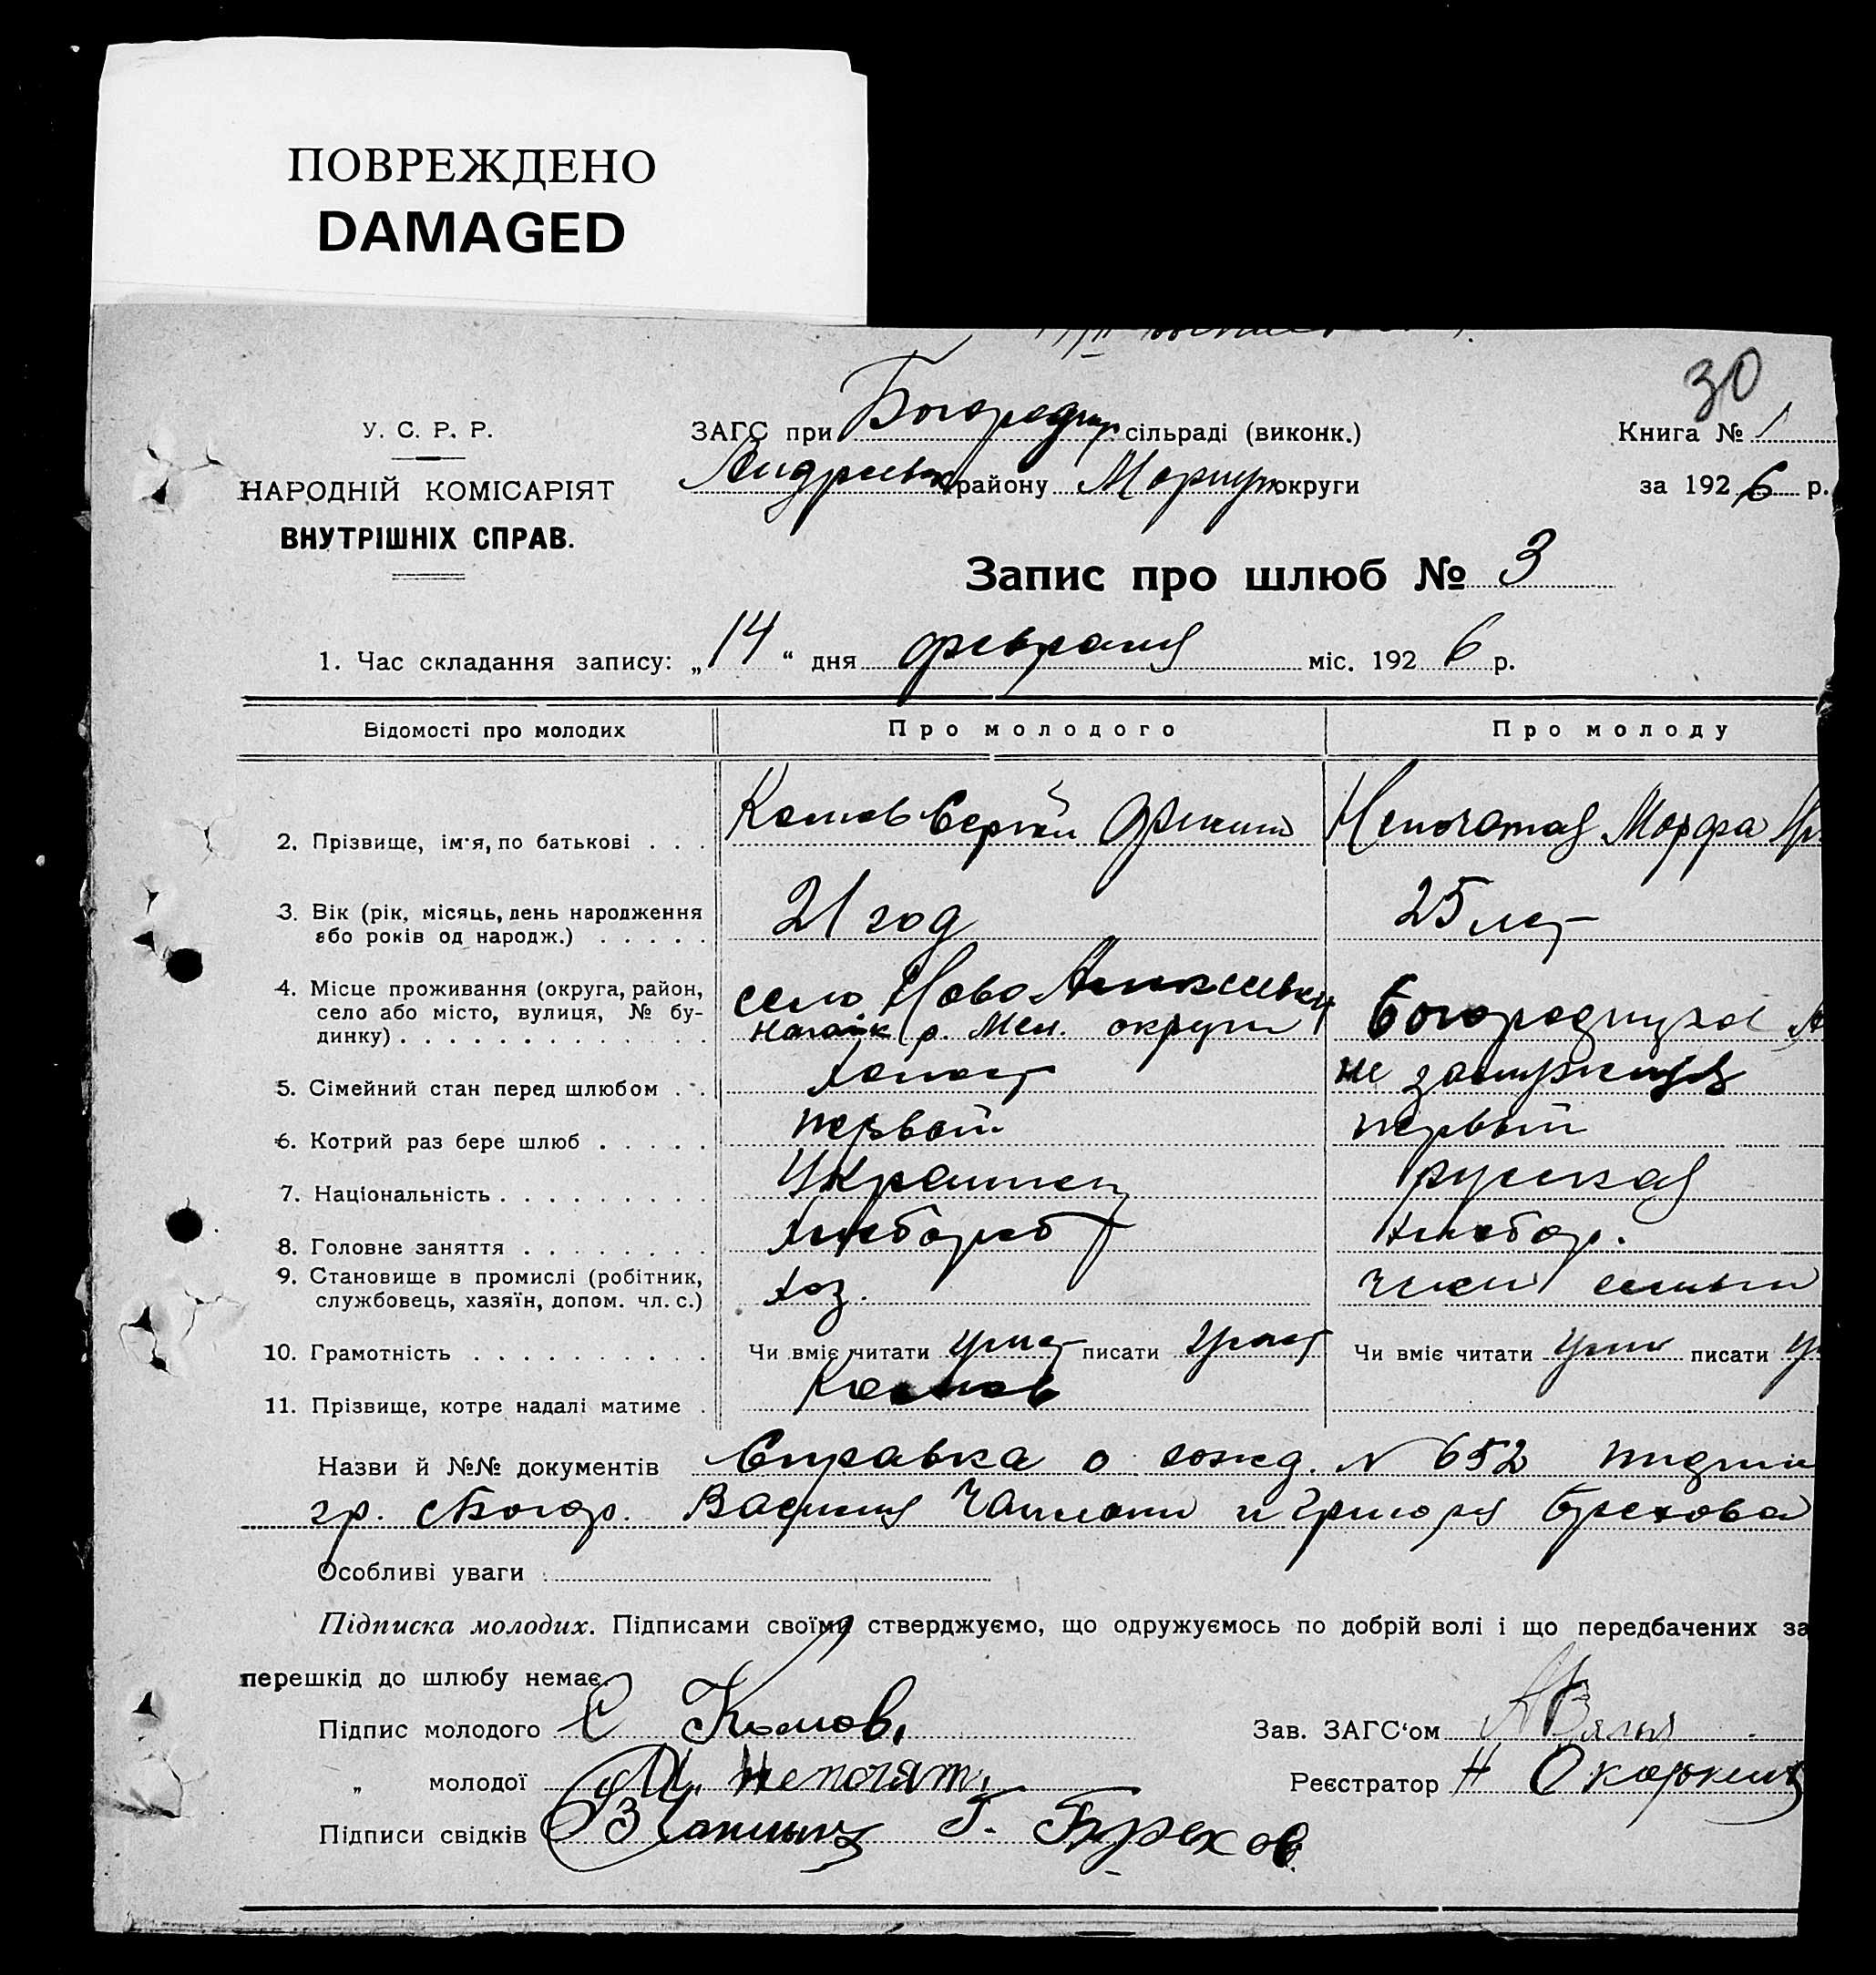 ПОВРЕЖДЕНО
DAMAGED
30
У. С. Р. Р.
НАРОДНІЙ КОМІСАРІЯТ
ВНУТРІШНІХ СПРАВ.
ЗАГС при Богородиц сільраді (виконк.)
Андреевск району Мариуп округи
Книга № 1
за 1926 р.
Запис про шлюб № 3
1. Час складання запису: „14“ дня февраля міс. 1926 р.
Відомості про молодих Про молодого Про молоду
2. Прізвище, ім'я, по батькові . . . Сергей Марфа
3. Вік (рік, місяць, день народження 21 год 25 лет
або років од народж.) . . . . .
4. Місце проживання (округа, район, село Ново Алексеевки
село або місто, вулиця, № бу- Богородицкое А
динку) . . . . . . . . . . . . . р. Мел. округи
5. Сімейний стан перед шлюбом . . холост не замужняя
6. Котрий раз бере шлюб . . . . . первый первый
7. Національність . . . . . . . . . Украинец русская
8. Головне заняття . . . . . . . . хлебороб хлебор.
9. Становище в промислі (робітник, хоз. член семьи
службовець, хазяїн, допом. чл. с.)
10. Грамотність . . . . . . . . . . Чи вміє читати умеет писати умеет Чи вміє читати умеет писати у
11. Прізвище, котре надалі матиме .
Назви й №№ документів Справка о рожд. N 652
гр. с Богор. Василия и Григория Брехова
Особливі уваги
Підписка молодих. Підписами своїми стверджуємо, що одружуємось по добрій волі і що передбачених за
перешкід до шлюбу немає.
Підпис молодого С
Зав. ЗАГС'ом
„ молодої М. Непочат.
Реєстратор Н
Підписи свідків В Г. Брехов.